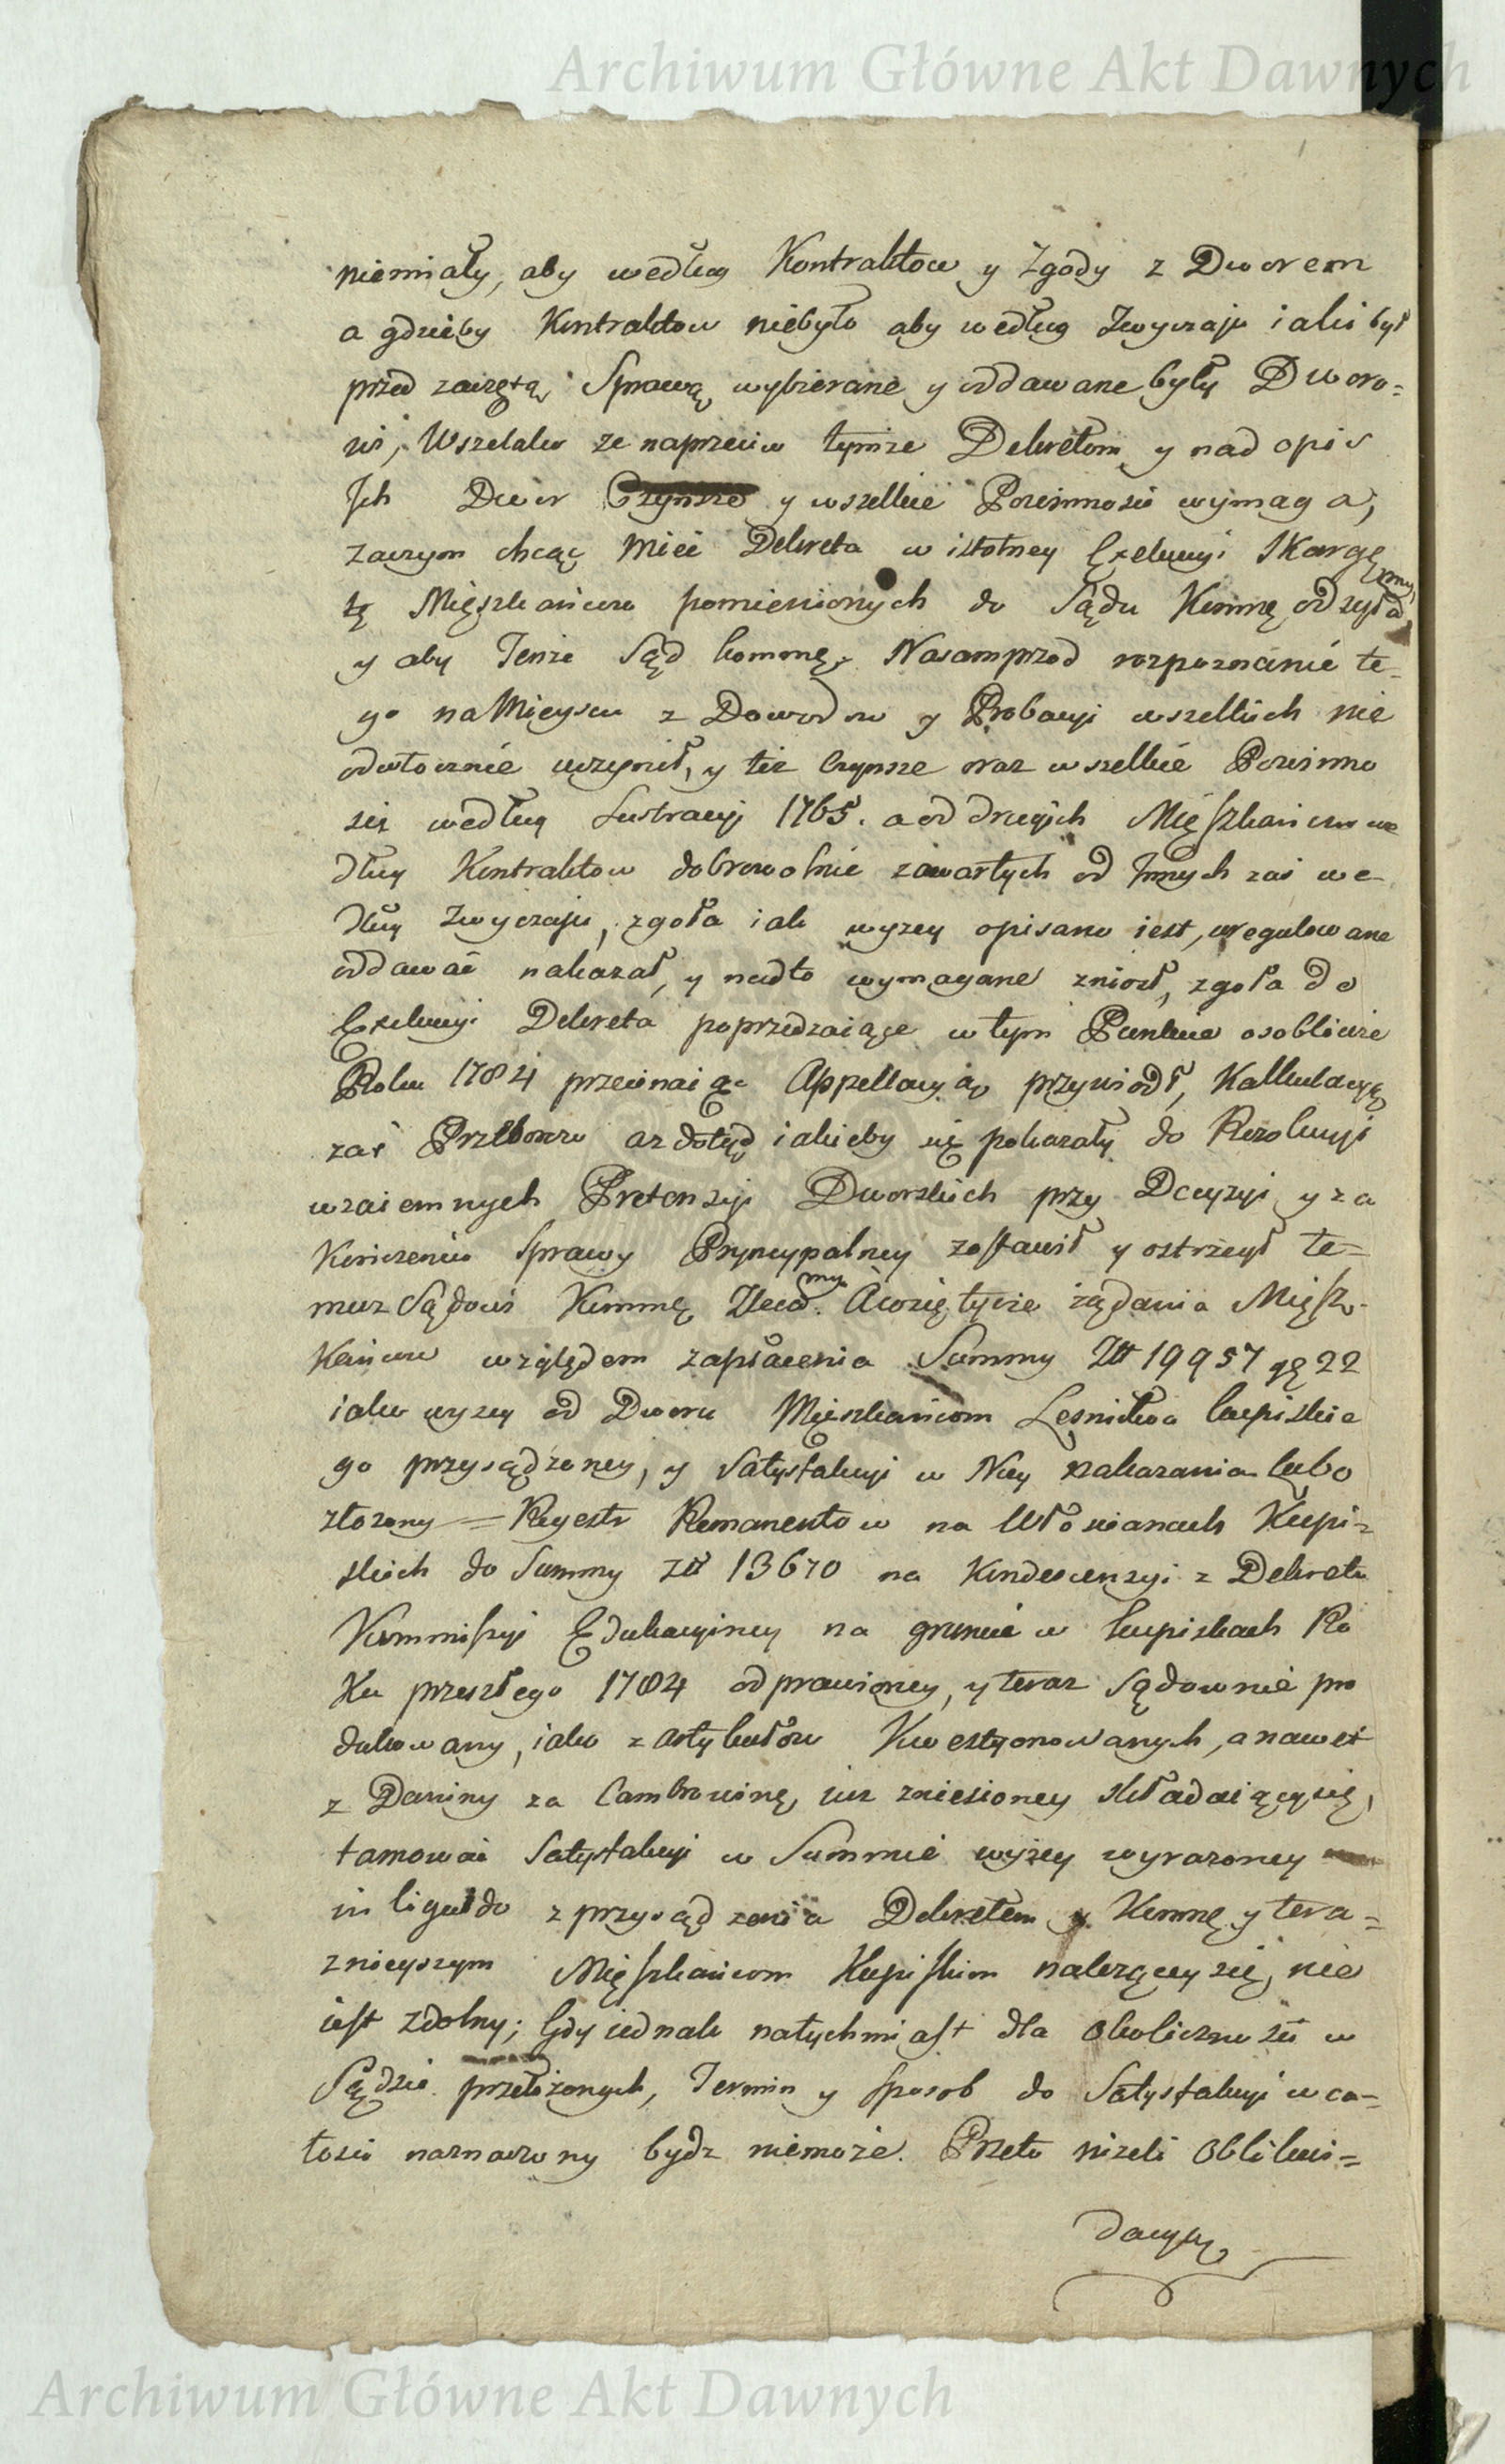 Archiwum Główne Akt Dawnych
niemiały, aby według Kontraktow y Zgody z Dworem
a gdzieby Kontraktow niebyło aby według Zwyczaju iaki był
przed zaczętą Sprawą wybierane y oddawane były Dworo=
wi, Wszelako ze naprzeciw tymże Dekretom y nad opis
Ich Dwor Czynsze y wszelkie Powinnosci wymaga,
zaczym chcąc miec Dekreta w istotney Exekucyi Skargę
tę Mięszkańcow pomienionych do Sądu Kommę odsyła my
y aby Tenże Sąd kommę. Nasamprzod rozpoznanie te=
go na Mieyscu z Dowodow y Probacyi wszelkich nie
odwłocznie uczynił, y też Czynsze oraz wszelkie Powinno
sci według Lustracyi 1765. a od drugich Mięszkańcow we
dług Kontraktow dobrowolnie zawartych od Innych zas we
dług Zwyczaju, zgoła iak wyzey opisano iest, uregulowane
oddawać nakazał, y nadto wymagane zniosł, zgoła do
Exekucyi Dekreta poprzedzaiące w tym Punkcie osobliwie
Roku 1784 przecinaiąc Appellacyą przywiodł, Kalkulacyą
zaś Przeborow az dotąd iakieby się pokazały do Rezolucyi
wzaiemnych Pretensyi Dworskich przy Decyzyi y za
Kończeniu Sprawy Pryncypalney zostawił y ostrzegł te=
muz Sądowi Kommę Zleca my. A wzięłycie żądania Mięsz-
Kańcow względem zapłacenia Summy Złł 19957 gę 22
iako wyzey od Dworu Mięszkańcom Leśnictwa kupiskie
go przysądzoney, y Satysfakcyi w Niey nakazania lubo
złożony = Regestr Remanentow na Włoscianach Kupi=
skich do Summy Złł 13670 na Kondescensyi z Dekretu
Kommissyi Edukacyiney na gruncie w kupiskach Ro
Ku przeszłego 1784 odprawioney, y teraz sądownie pro
dukowany, iako z artykułow Kwestyonowanych, a nawet
z Daniny za Cambrowinę, iuz zniesioney składaiący się,
tamowai Satysfakcyi w Summie wyżey wyrazoney
in liquido z przysądzenia Dekretem y Kommę y tera=
znieyszym Mięszkańcom Kupiskim nalezącey się, nie
iest zdolny; Gdy iednak natychmiast dla okolicznosci w
Sądzie przełożonych, Termin y sposob do Satysfakcyi w ca=
łosci naznaczony bydz niemoże. Przeto niżeli Oblikwi=
dacyey
Archiwum Główne Akt Dawnych